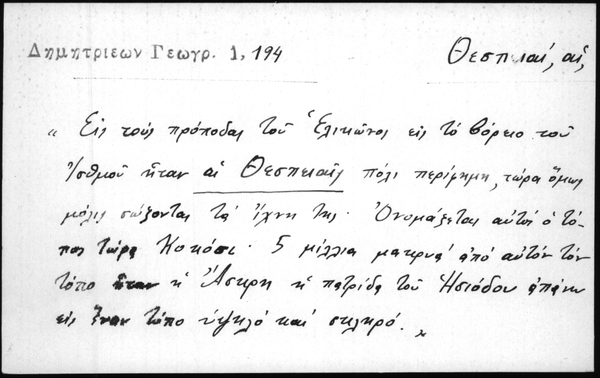 Δημητριεων Γεωγρ. 1, 194
Θεσπειαί, αἱ,
„ Εἰς τοὺς πρόποδας τοῦ Ἑλικῶνος εἰς τὸ βόρειο τοῦ
Ἰσθμοῦ ἦταν αἱ Θεσπειαὶ, πόλι περίφημη, τώρα ὅμως
μόλις σώζονται τὰ ἴχνη της. Ὀνομάζεται αὐτὸς ὁ τό-
πος τώρα Κακόσι. 5 μίλλια μακρυὰ ἀπὸ αὐτὸν τὸν
τόπο ἦταν ἡ Ἄσκρη ἡ πατρίδα τοῦ Ἡσιόδου ἀπάνω
εἰς ἕναν τόπο ὑψηλὸ καὶ σκληρό. „